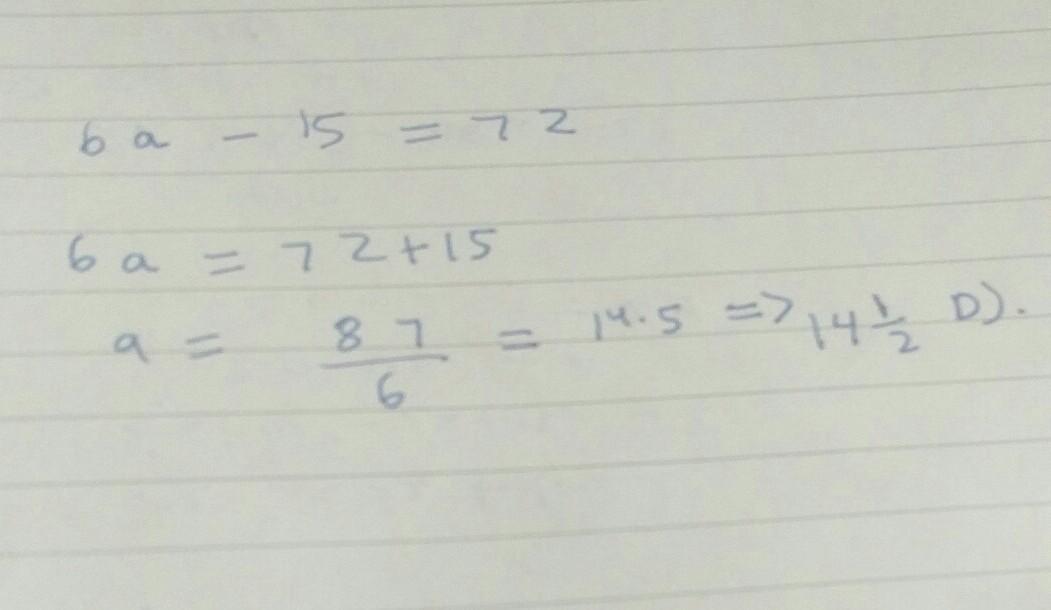 6a - 15 = 72
6a = 72+15
a = 87/6 = 14.5 => 14 1/2 D).